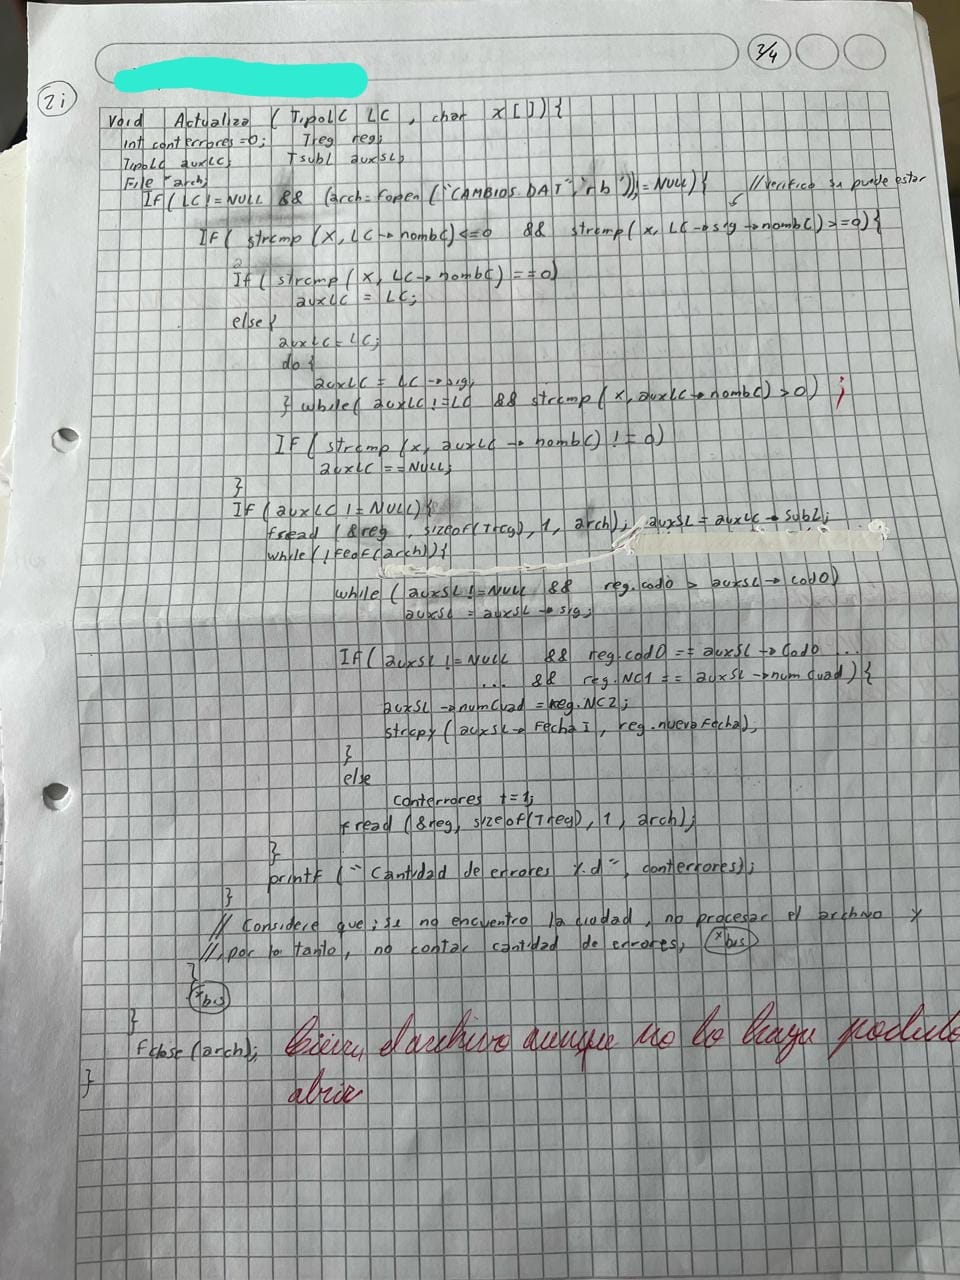 3/4
2i
void Actualiza (TipoLC LC , char x[]){
int conterrores=0; Treg reg;
TipoLC auxLC; Tsubl auxSL;
File *arch;
IF( LC!=NULL && (arch=fopen ("CAMBIOS.DAT","rb"))!=NULL){ //verifico si puede estar
IF( strcmp (x, LC→nombC)<=0 && strcmp( x, LC→sig→nombC)>=0){
If( strcmp( x, LC→nombC)==0)
auxLC = LC;
else{
auxLC=LC;
do{
auxLC = LC→sig;
} while( auxLC!=LC && strcmp( x, auxLC→nombC)>0) ;
IF( strcmp (x, auxLC→nombC) !=0)
auxLC==NULL;
}
If (auxLC !=NULL){
fread (&reg , sizeof(Treg), 1, arch); auxSL=auxLC→subL;
while(!feof(arch)){
while( auxSL!=NULL && reg.codO > auxSL→codO)
auxSL = auxSL→sig;
If( auxSL!=NULL && reg.codO == auxSL→CodO ...
... && reg.NC1== auxSL→numCuad){
auxSL→numCuad=reg.NC2;
strcpy( auxSL→FechaI, reg.nuevaFecha);
}
else
conterrores +=1;
fread (&reg, sizeof(Treg), 1, arch);
}
printf ("Cantidad de errores %d", conterrores);
}
// Considere que ; se no encuentro la ciudad, no procesar el archivo y
// , por lo tanto, no contar cantidad de errores, *bis
}
*bis
}
fclose(arch); cierra el archivo aunque no lo haya podido
abrir
}